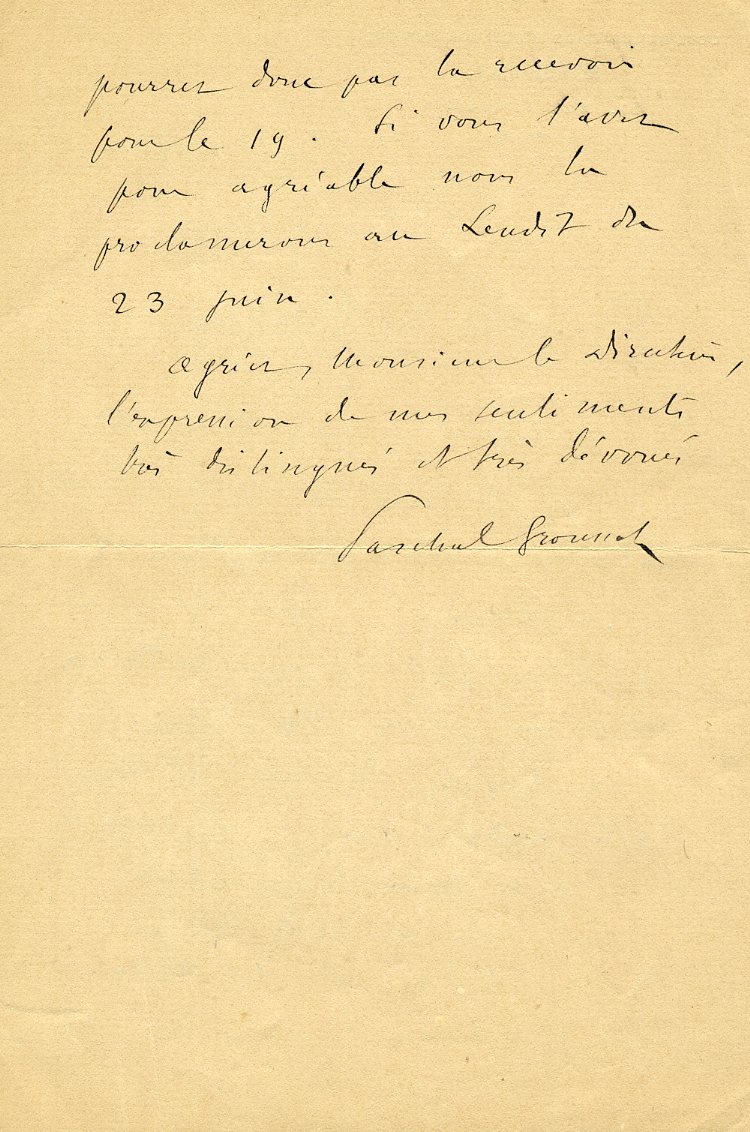 pourrez donc pas la recevoir
pour le 19. Si vous l'avez
pour agréable nous la
proclamerons au Lendit du
23 juin.
Agréez, Monsieur le Directeur,
l'expression de mes sentiments
très distingués et très dévoués
Paschal Grousset